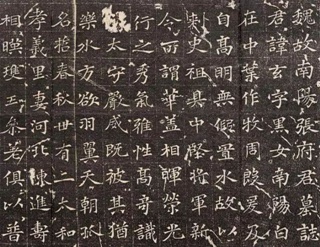 魏故南陽張府君墓誌
君諱玄字黑女南陽白
在中葉作牧周殷爰及
自高明無假置水故以
刺史祖具中堅將軍新
令所謂華蓋相暉榮光
行之秀氣雅性高奇識
陽太守嚴威既被其猶
樂水方欲羽翼天朝抓
名哲春秋卅有二太和
孝義里妻河北陳進壽
相暎瓊玉參差俱以普